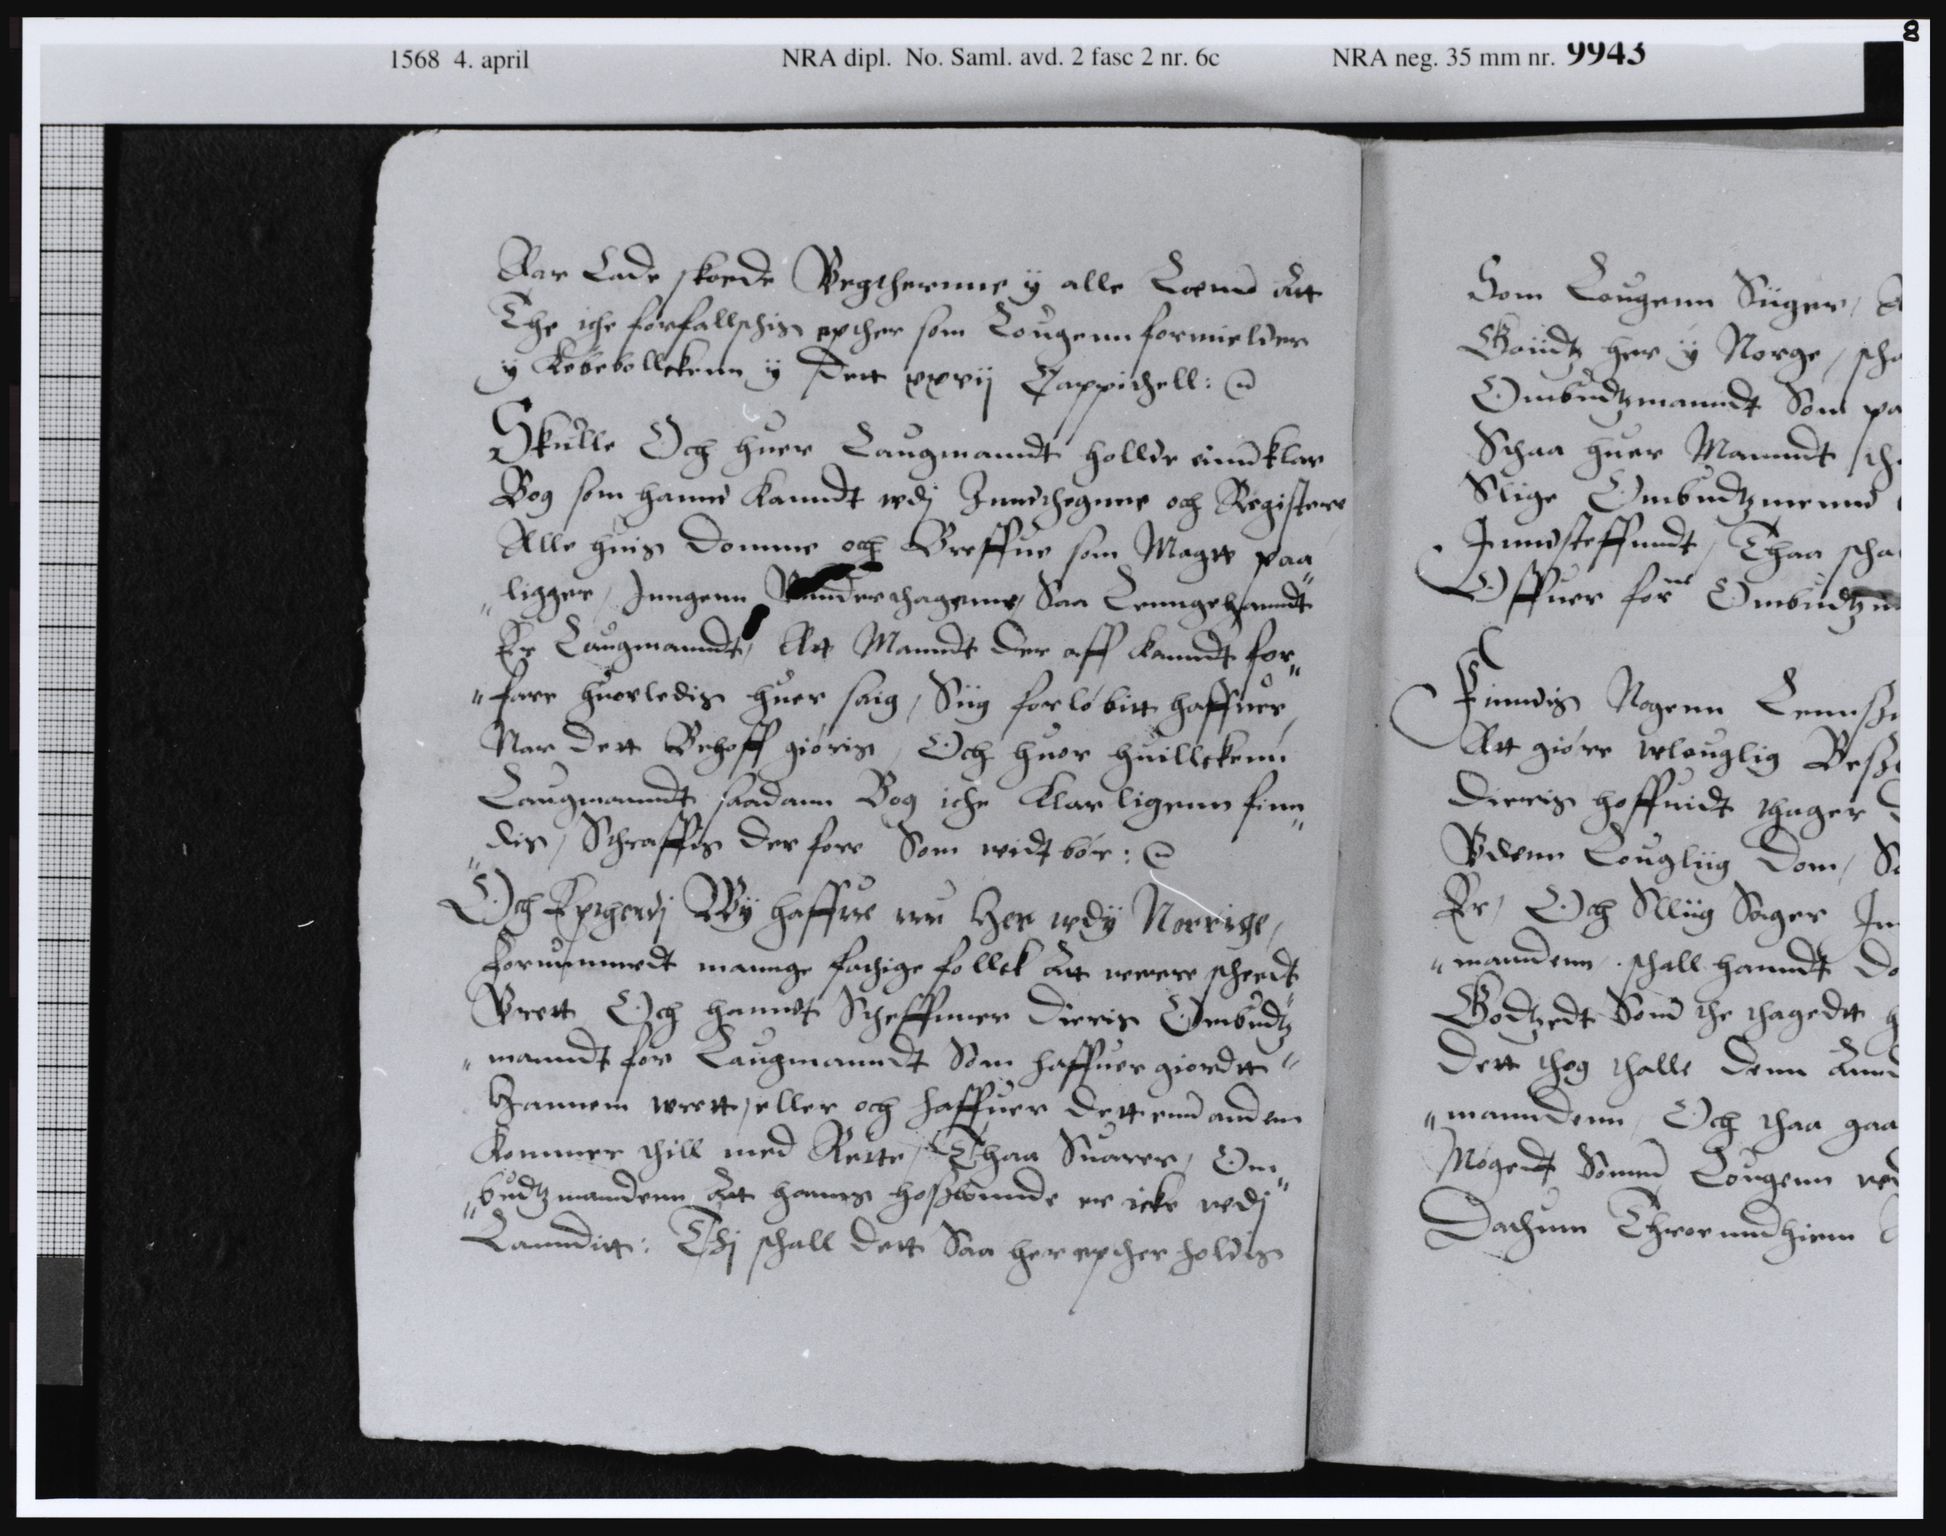 8
1568 4. april NRA dipl. No. Saml. avd. 2 fasc 2 nr. 6c NRA neg. 35 mm nr. 9943
Aar Lade skoede Vegtherune y alle Lennd Att
The iche forfallschis epther som Lougenn formielder
y Kebebollckenn y Dett xxvij Cappithell:
Skulle Och huer Laugmanndt hollde enndklar
Bog som hannd Kanndt wdj Inndthegnne och Registere
Alle huis Domme och Breffue som Magtt paa
ligger, Inngenn Vnnderthagenne, Saa Lenngehanndt
Er Laugmanndt, Att Manndt der aff Kanndt for„
„fare huorledis huer saig, Siig forløbitt haffuer,
Nar dett Behoff giøris, Och huor huillckenn
Laugmanndt saadann Bog iche Klarligenn finn„
„dis, Schraffis derfore Som widt bør:
Och Eptherdj Wij haffue nu Her wdij Norrige,
Forunnmedt mannge fathige follck Att werre scheedt
Vrett Och hanndt Scheffnner Dieris Ombudtz„
„manndt for Laugmanndt Som haffuer giordtt„
Hannem wrett, eller och haffuer dett ennd anden
Kommer thill med Rette, Thaa Suarer, Om„
„budtzmandenn, Att hanns hoßbunnde er icke wdj
Lannditt: Thj schall dett Saa her epther holdis
Som Lougenn Siiger,
Goudtz her y Norge, scha
Ombudtzmanndt Som pa
Schaa huer Manndt sch
Slige Ombudtzmennd
Inndsteffnndt, Thaa scha
Offuer forne Ombudtzm
Finndis Nogenn Lennßm
Att giøre wlouglig Beß
Dieris hoffuidt thager
Vdenn Louglig Dom, Sa
Er, Och Sliig Sager In
„manndenn, schall hanndt do
Godtzedt Som the thagedtt h
Dett thog thalle denn Ann
„manndenn, Och thaa gaa
Mögedt Somm Lougenn wd
Dathum Throenndhiem